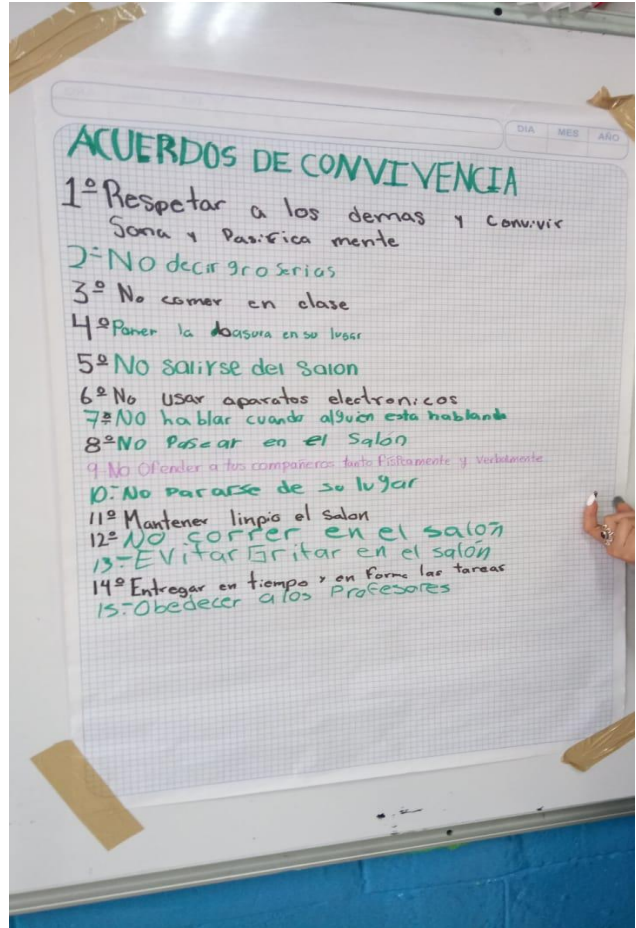 DIA MES AÑO
ACUERDOS DE CONVIVENCIA
1º Respetar a los demas y convivir
Sana y Pasifica mente
2º No decir groserias
3º No comer en clase
4º Poner la basura en su lugar
5º No salirse del salon
6º No usar aparatos electronicos
7º NO hablar cuando alguien esta hablando
8º NO Pasear en el Salón
9.-No Ofender a tus compañeros tanto Fisicamente y Verbalmente
10.- No pararse de su lugar
11º Mantener linpio el salon
12º NO correr en el salón
13.- EVitar Gritar en el salón
14º Entregar en tiempo y en forma las tareas
15.- Obedecer a los Profesores